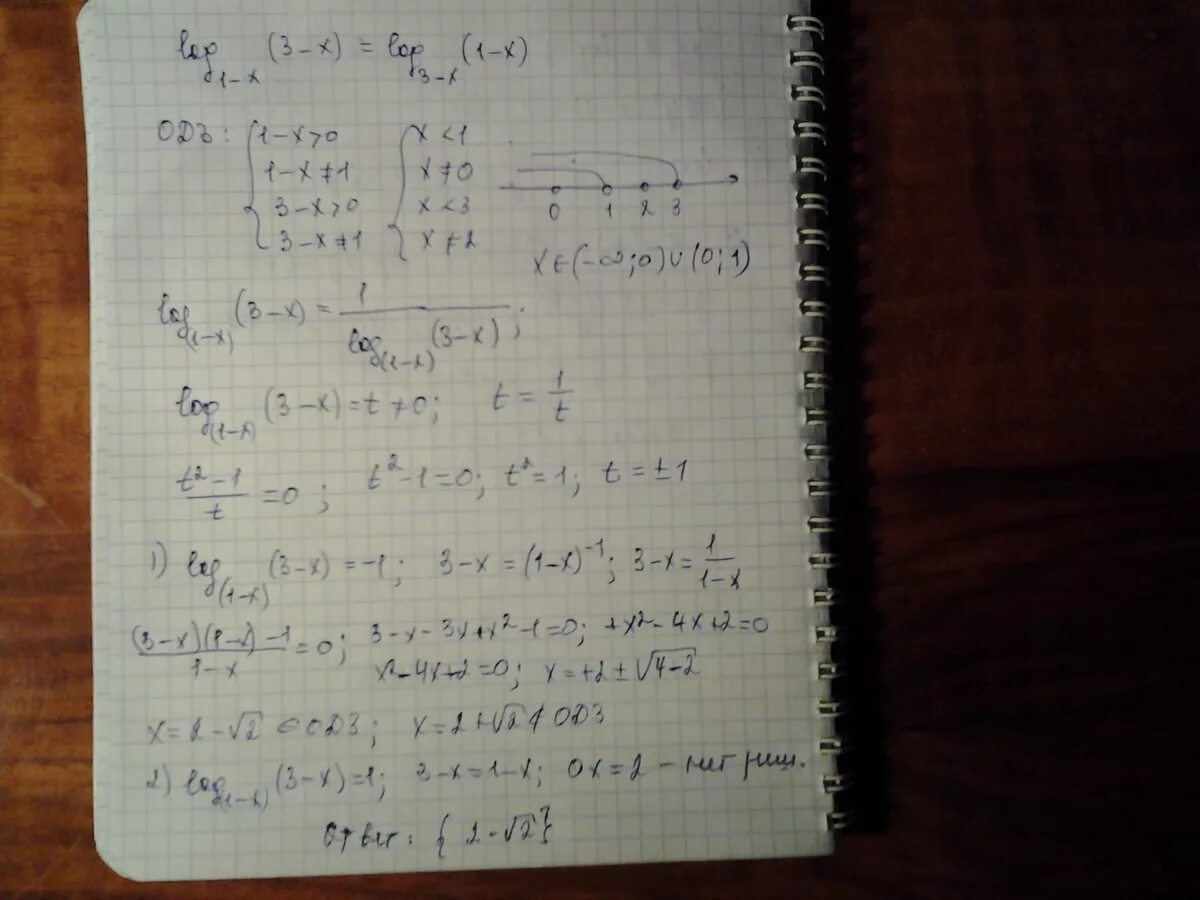 log₁₋ₓ (3-x) = log₃₋ₓ (1-x)
ОДЗ: { 1-x>0 { x<1
1-x≠1 x≠0
3-x>0 x<3
3-x≠1 x≠2
0 1 2 3
x∈(-∞;0)∪(0;1)
log₍₁₋ₓ₎ (3-x) = 1/log₍₁₋ₓ₎(3-x);
log₍₁₋ₓ₎ (3-x) = t ≠ 0; t = 1/t
(t²-1)/t = 0; t²-1=0; t²=1; t=±1
1) log₍₁₋ₓ₎ (3-x) = -1; 3-x = (1-x)⁻¹; 3-x = 1/(1-x)
((3-x)(1-x)-1)/(1-x) = 0; 3-x-3x+x²-1=0; +x²-4x+2=0
x²-4x+2=0; x=+2±√(4-2)
x=2-√2 ∈ ОДЗ; x=2+√2 ∉ ОДЗ
2) log₍₁₋ₓ₎ (3-x)=1; 3-x=1-x; 0x=2 - нет реш.
Ответ: {2-√2}